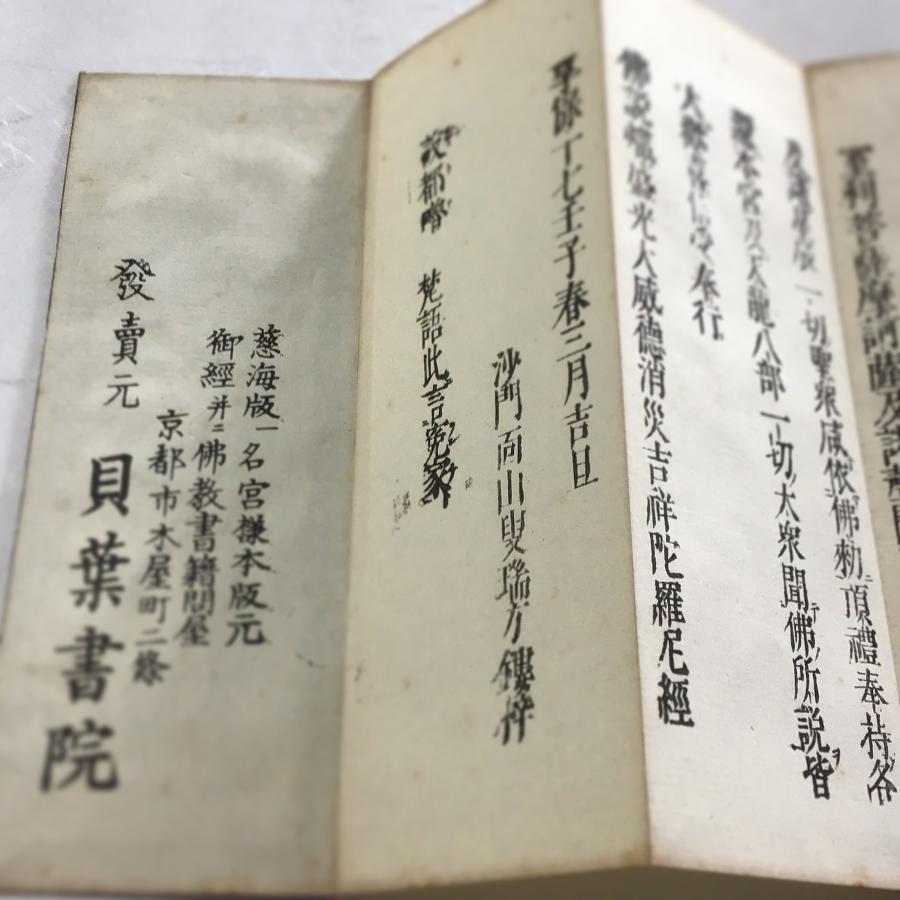 一切聖衆咸依佛勅頂禮奉持各
及天龍八部一切大衆聞佛所説皆
奉行
佛説熾盛光大威德消災吉祥陀羅尼經
享保丁七壬子春三月吉旦
沙門面山叟瑞方鏤梓
設都嚕 梵語此言寃家
慈海版一名宮様本版元
御經并ニ佛教書籍問屋
京都市木屋町二條
發賣元 貝葉書院